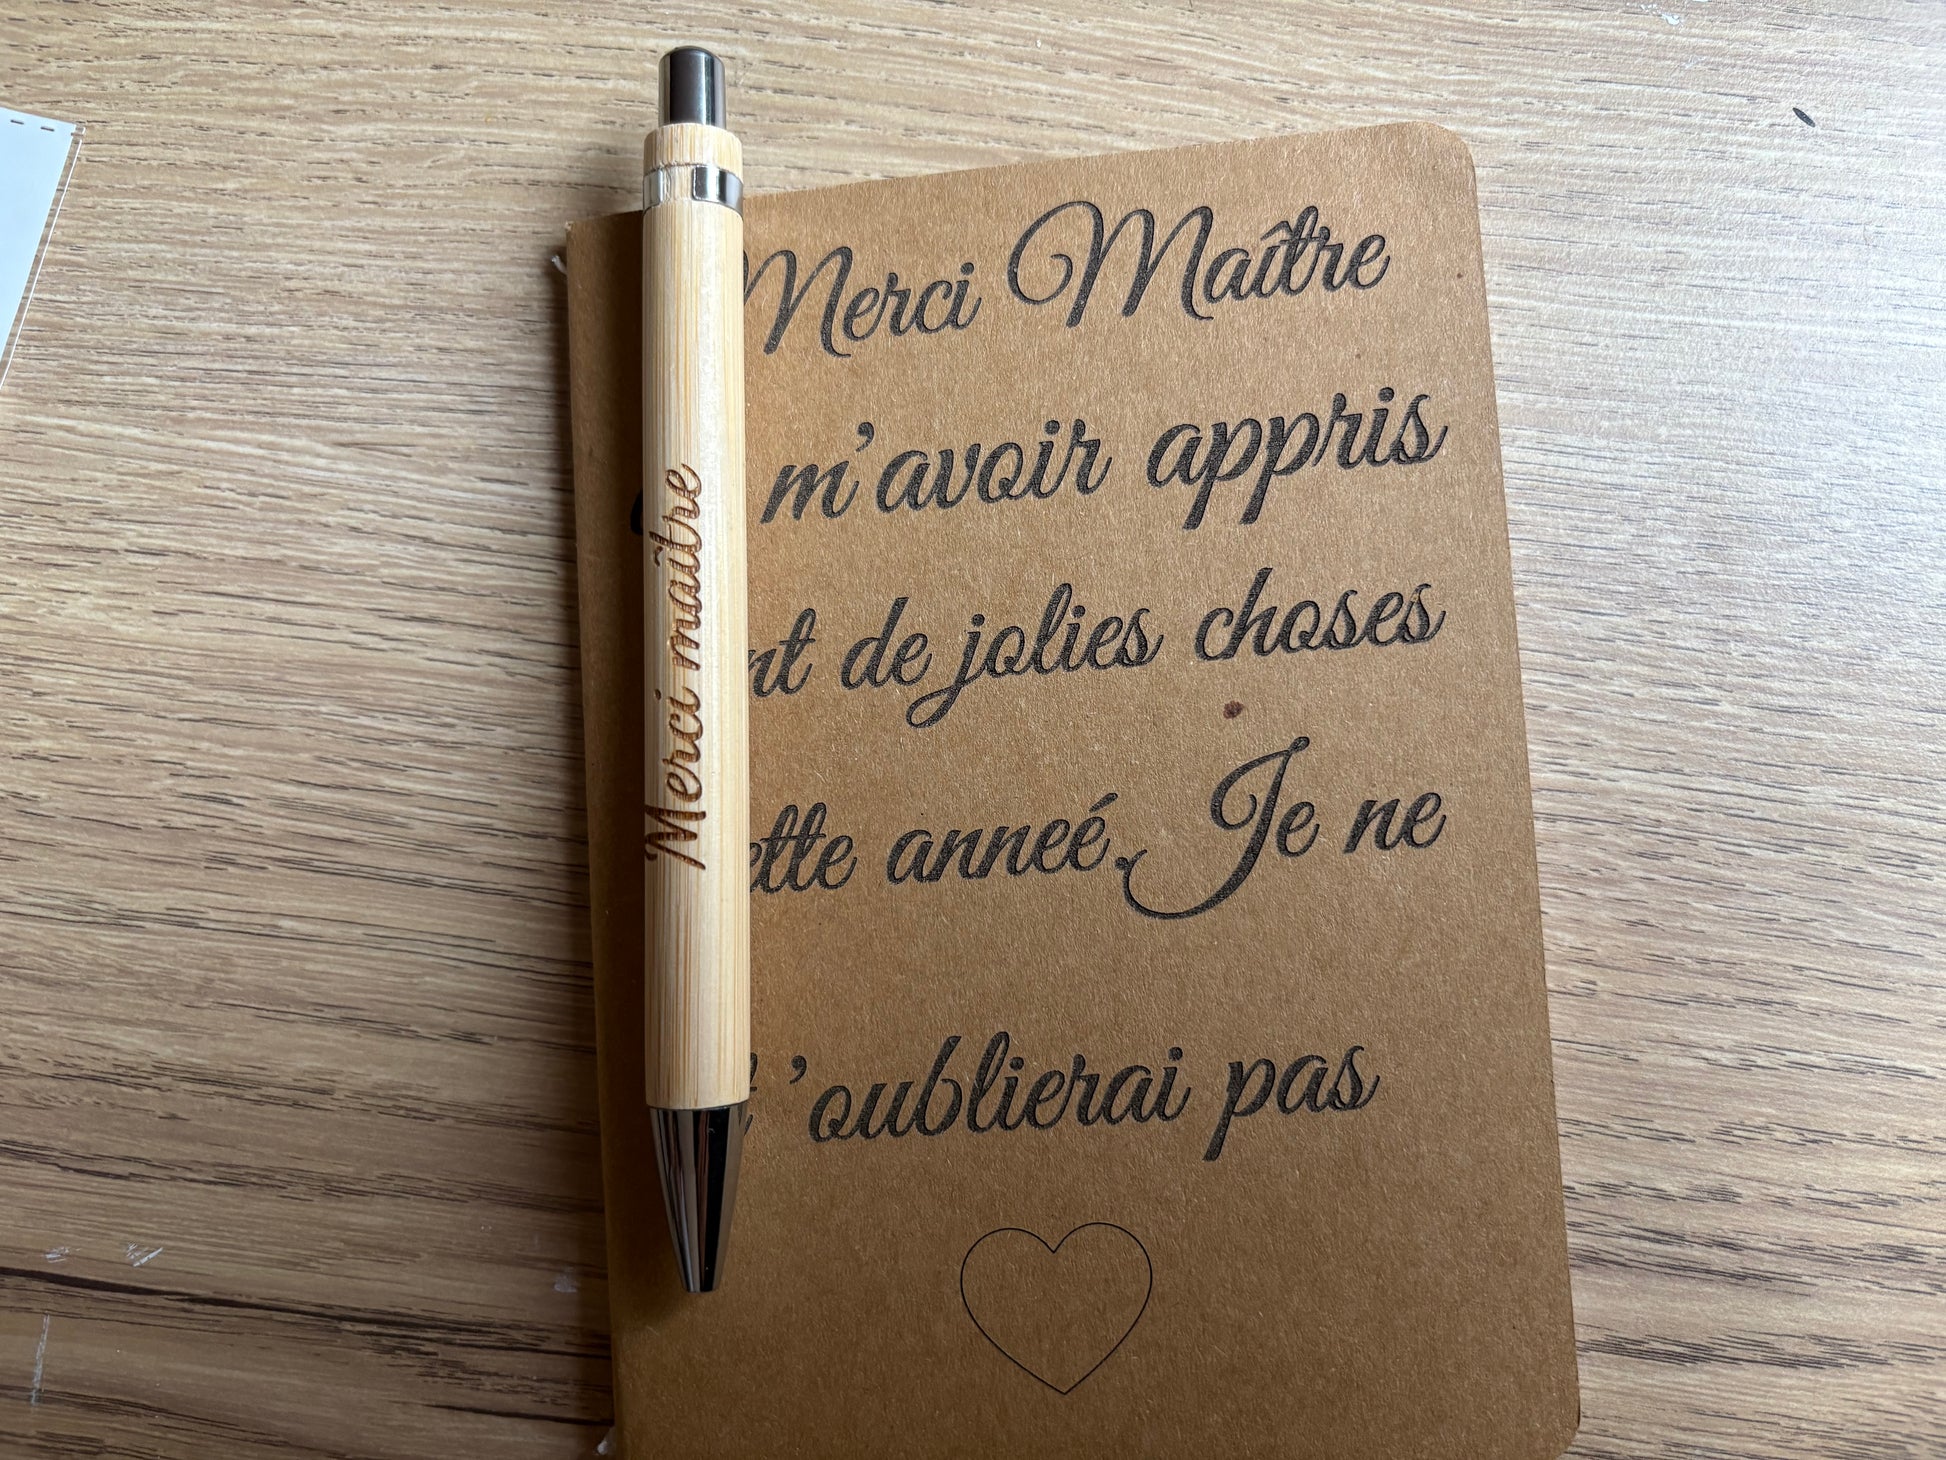 Merci maître
Merci Maître
m'avoir appris
de jolies choses
anneé. Je ne
l'oublierai pas